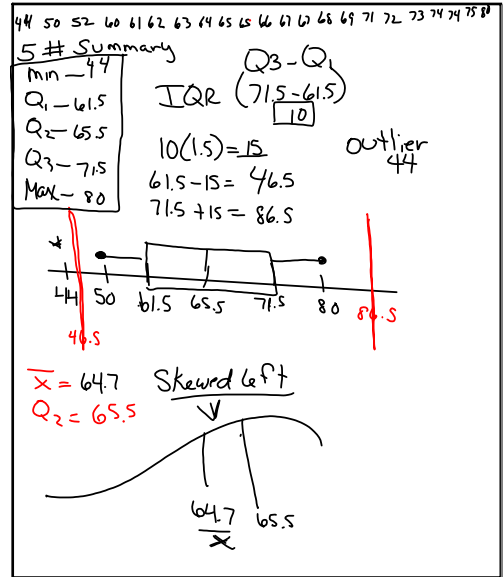 44 50 52 60 61 62 63 64 65 65 66 67 67 68 69 71 72 73 74 74 75 80
5 # Summary
Min — 44
Q1 — 61.5
Q2 — 65.5
Q3 — 71.5
Max — 80
Q3 - Q1
IQR (71.5 - 61.5)
10
10(1.5) = 15
61.5 - 15 = 46.5
71.5 + 15 = 86.5
outlier
44
*
44 50 61.5 65.5 71.5 80 86.5
46.5
x̅ = 64.7
Q2 = 65.5
Skewed left
64.7 65.5
x̅